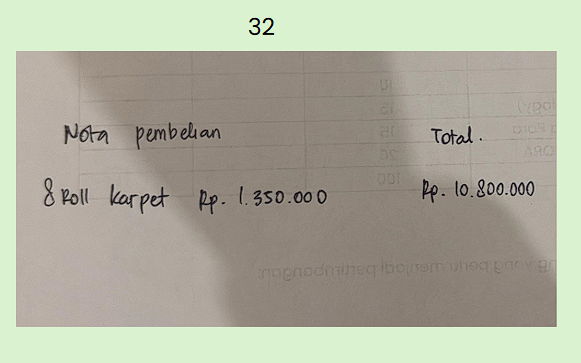 32
Nota pembelian Total.
8 Roll karpet Rp. 1.350.000 Rp. 10.800.000